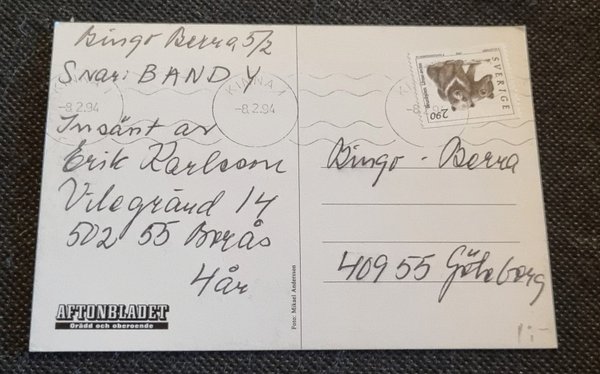 Bingo Berra 5/2
Svar: BANDY
KINNA 1
-8.2.94
-8.2.94
Insänt av
Erik Karlsson
Vilegränd 14
502 55 Borås
4 år
AFTONBLADET
Grädd och oberoende
Foto: Mikael Andersson
SVERIGE
290
Bingo - Berra
409 55 Göteborg
1:-